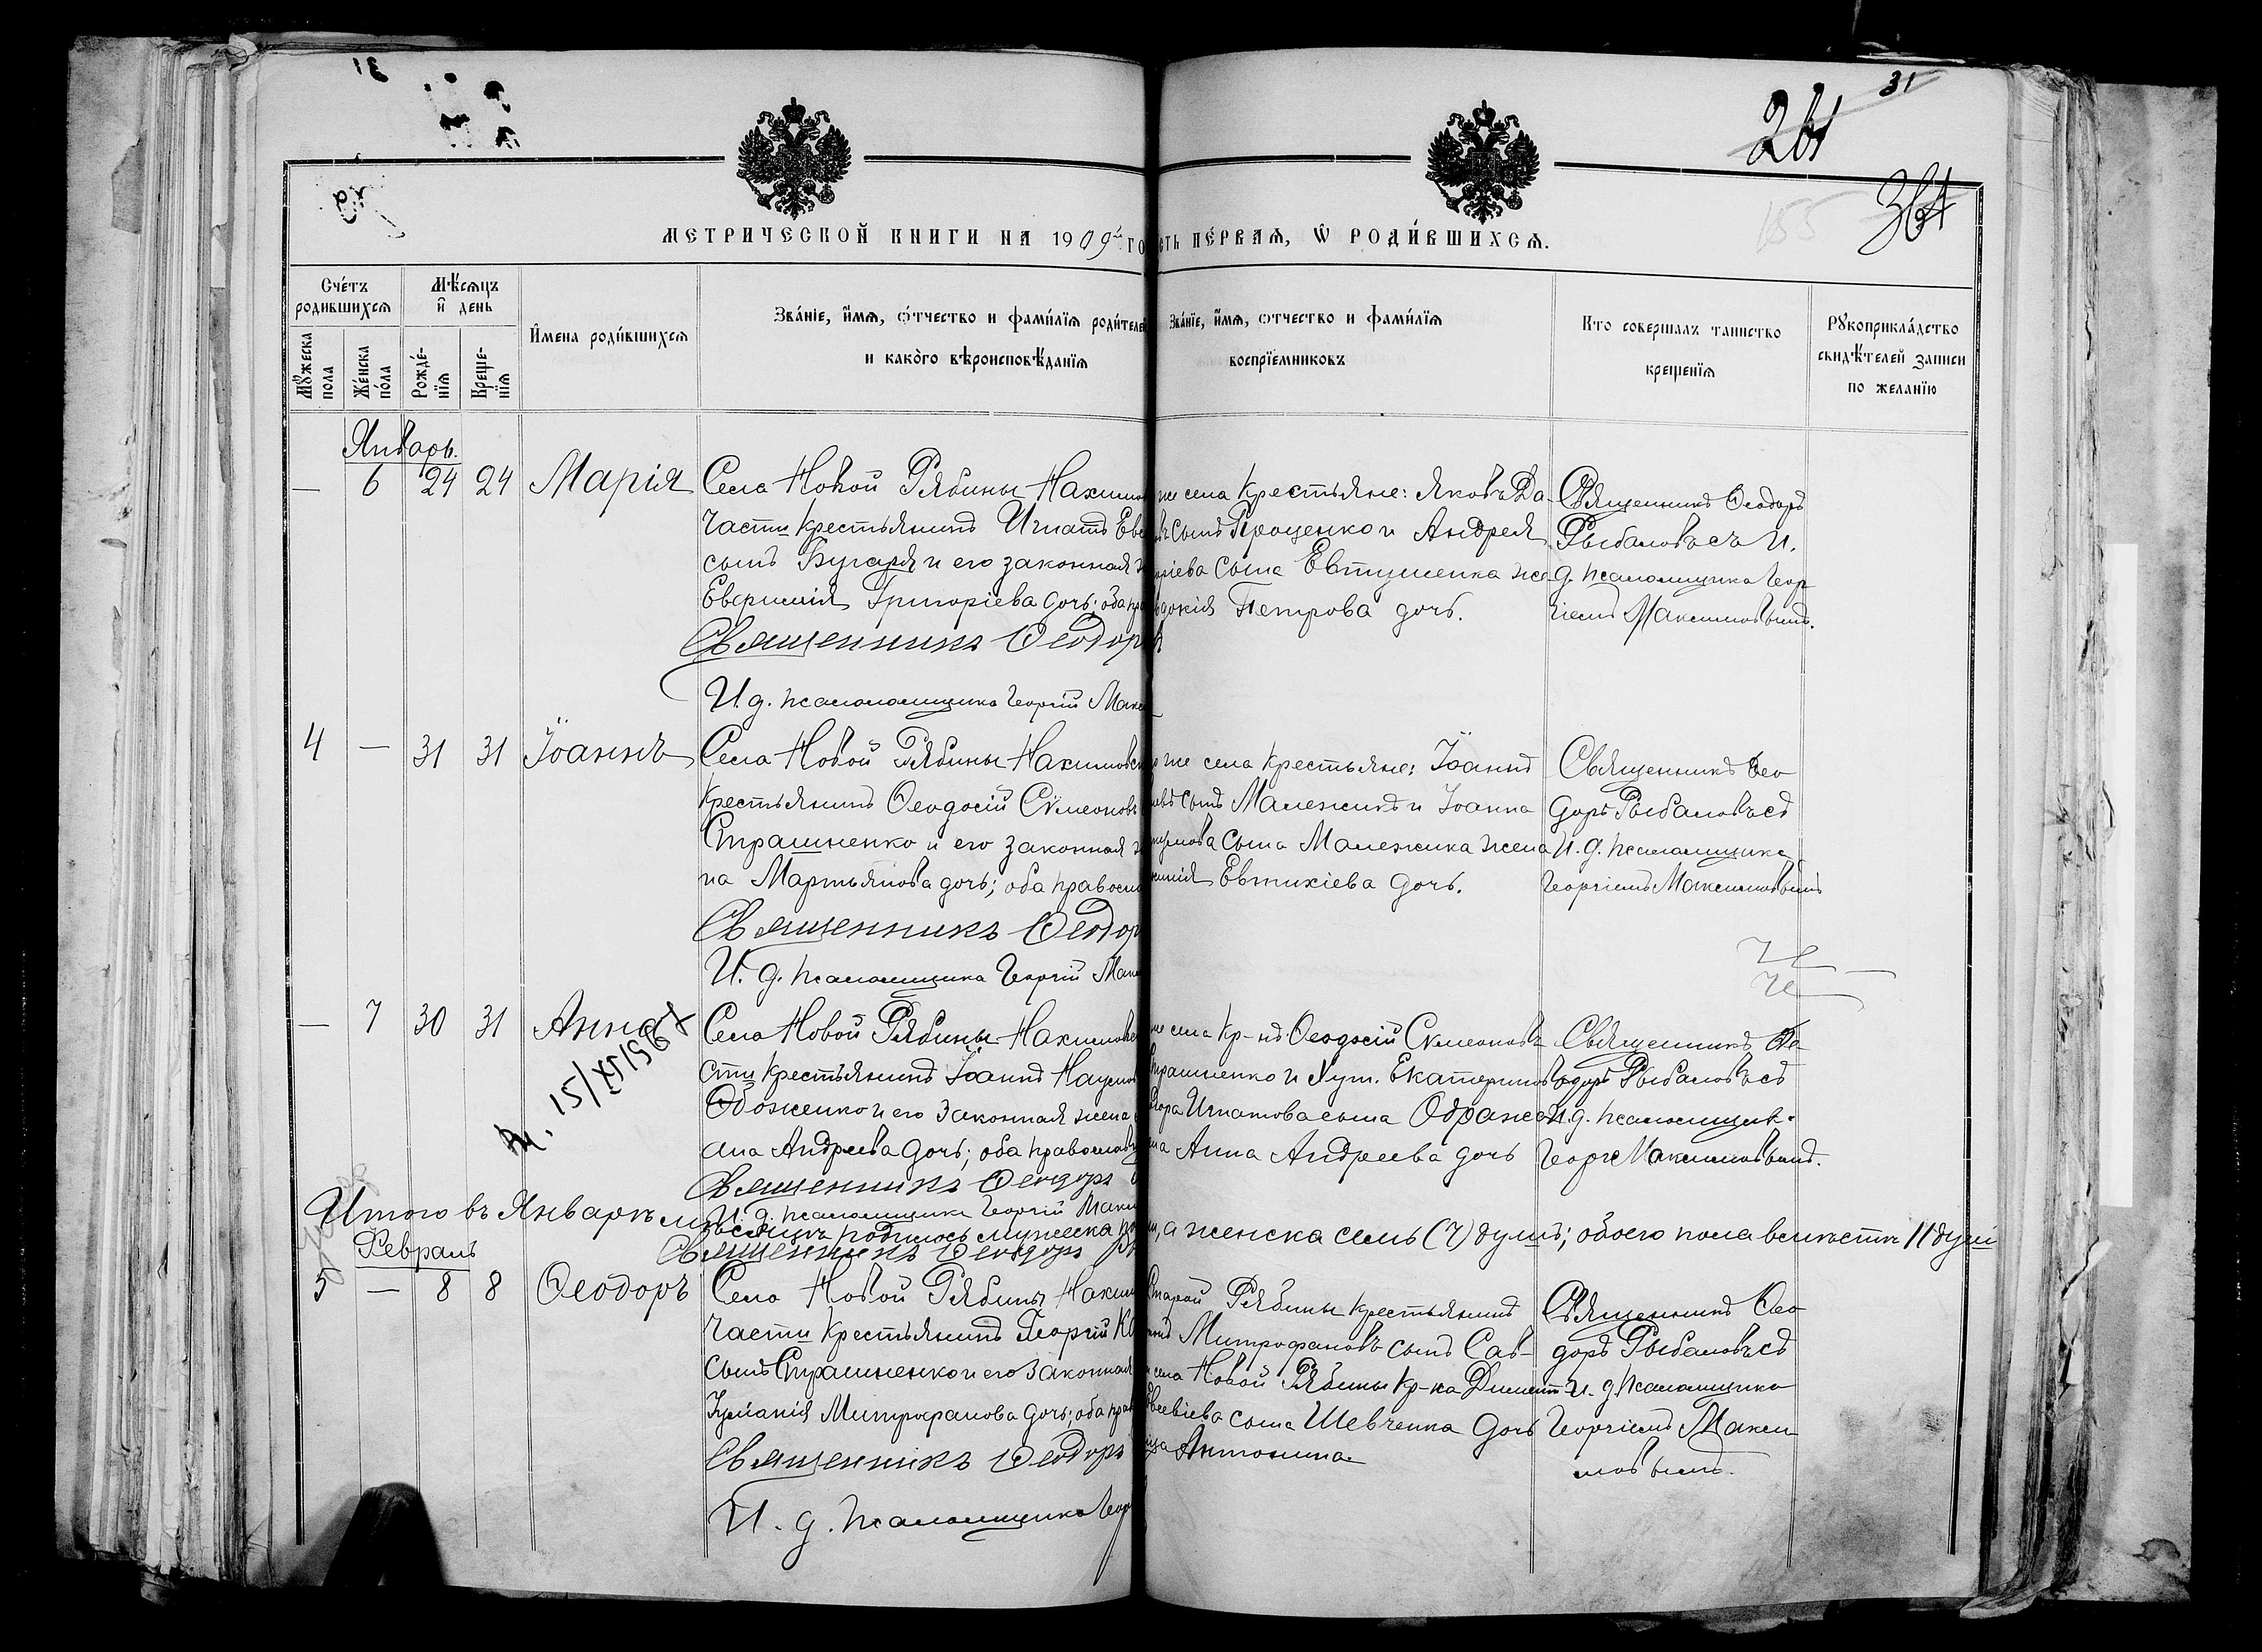 31
261
364
155
МЕТРИЧЕСКОЙ КНИГИ НА 1909й ГО
СТЬ ПЕ́РВАЯ, Ѿ РОДИ́ВШИХСЯ.
Счéтъ родившихся
Мѣ́сяцъ и҆ день
Мꙋ́жеска пола
Же́нска по́ла
Рожде́-нїя
Креще-нїя
И҆мена роди́вшихся
Зва́нїе, и҆́мя, ѻ҆́тчество и фами́лїя роди́телей
и како́го вѣроисповѣ́данїя
Зва́нїе, и҆́мя, ѻтчество и фами́лїя
воспрїе́мниковъ
Кто совершалъ таинство
крещенїя
Рꙋкоприкла́дство
свидѣ́телей записи
по желанїю
Январь.
— 6 24 24 Марія
Села Новой Рябины Нахимов
части крестьянинъ Игнатъ Евс
сынъ Бугаря и его законная ж
Евфимія Григоріева дочь; оба пра
Священникъ Ѳеодоръ
И. д. псаломщика Георгій Макс
же села крестьяне: Яковъ Да-
въ сынъ Проценко и Андрея
ріева сына Евтушенка же-
вдокія Петрова дочь.
Священникъ Ѳеодоръ
Рыбаловъ съ И.
д. псаломщика Геор
гіемъ Максимовымъ.
4 — 31 31 Іоаннъ
Села Новой Рябины Нахимовск
крестьянинъ Ѳеодосій Сѵмеоновъ
Страшненко и его законная ж
на Мартьянова дочь; оба правосла
Священникъ Ѳеодор
И. д. псаломщика Георгій Макс
же села крестьяне: Іоаннъ
овъ сынъ Малежикъ и Іоанна
умова сына Малежика жена
Евтихіева дочь.
Священникъ Ѳео
доръ Рыбаловъ съ
И. д. псаломщика
Георгіемъ Максимовымъ
— 7 30 31 Анна
15/XI 19
Села Новой Рябины Нахимовс
сти крестьянинъ Іоаннъ Наумов
его законная жена
ана Андреева дочь; оба православн
Священникъ Ѳеодоръ
И. д. псаломщика Георгій Макс
же села кр-нъ Ѳеодосій Сѵмеоновъ
трашненко и хут. Екатериновк
Игнатова сына
на Анна Андреева дочь
Священникъ Ѳе
одоръ Рыбаловъ съ
И. д. псаломщик.
Георг. Максимовымъ.
Итого въ Январѣ мѣсяцѣ родилось мужеска по
а женска семь (7) душъ; обоего пола вмѣстѣ 11 душъ
Священникъ Ѳеодоръ
Февраль
5 — 8 8 Ѳеодоръ
Села Новой Рябины Нахим
части крестьянинъ Георгій
сынъ Страшненко и его законная
Іуліанія Митрофанова дочь; оба прав
Священникъ Ѳеодоръ
И. д. псаломщика Геор
Старой Рябины крестьянинъ
Митрофановъ сынъ Сав-
села Новой Рябины кр-на Димит
Евсевіева сына Шевченка дочь
ица Антонина
Священникъ Ѳео
доръ Рыбаловъ съ
И. д. псаломщика
Георгіемъ Макси
мовымъ.